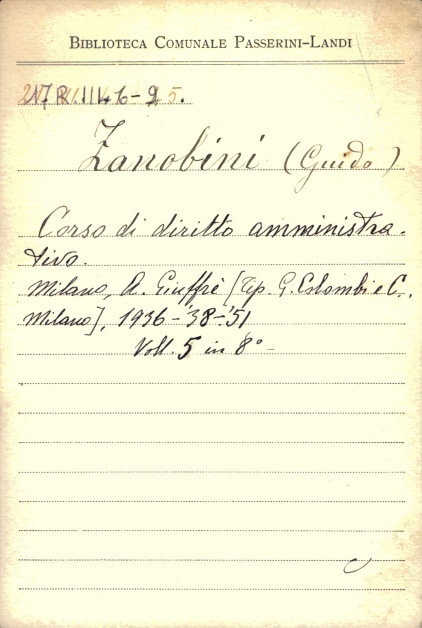 BIBLIOTECA COMUNALE PASSERINI-LANDI
Zanobini (Guido)
Corso di diritto amministra-
tivo.
Milano, A. Giuffrè [Tip. G. Colombi e C.,
Milano], 1936-'38-'51
Voll. 5 in 8°